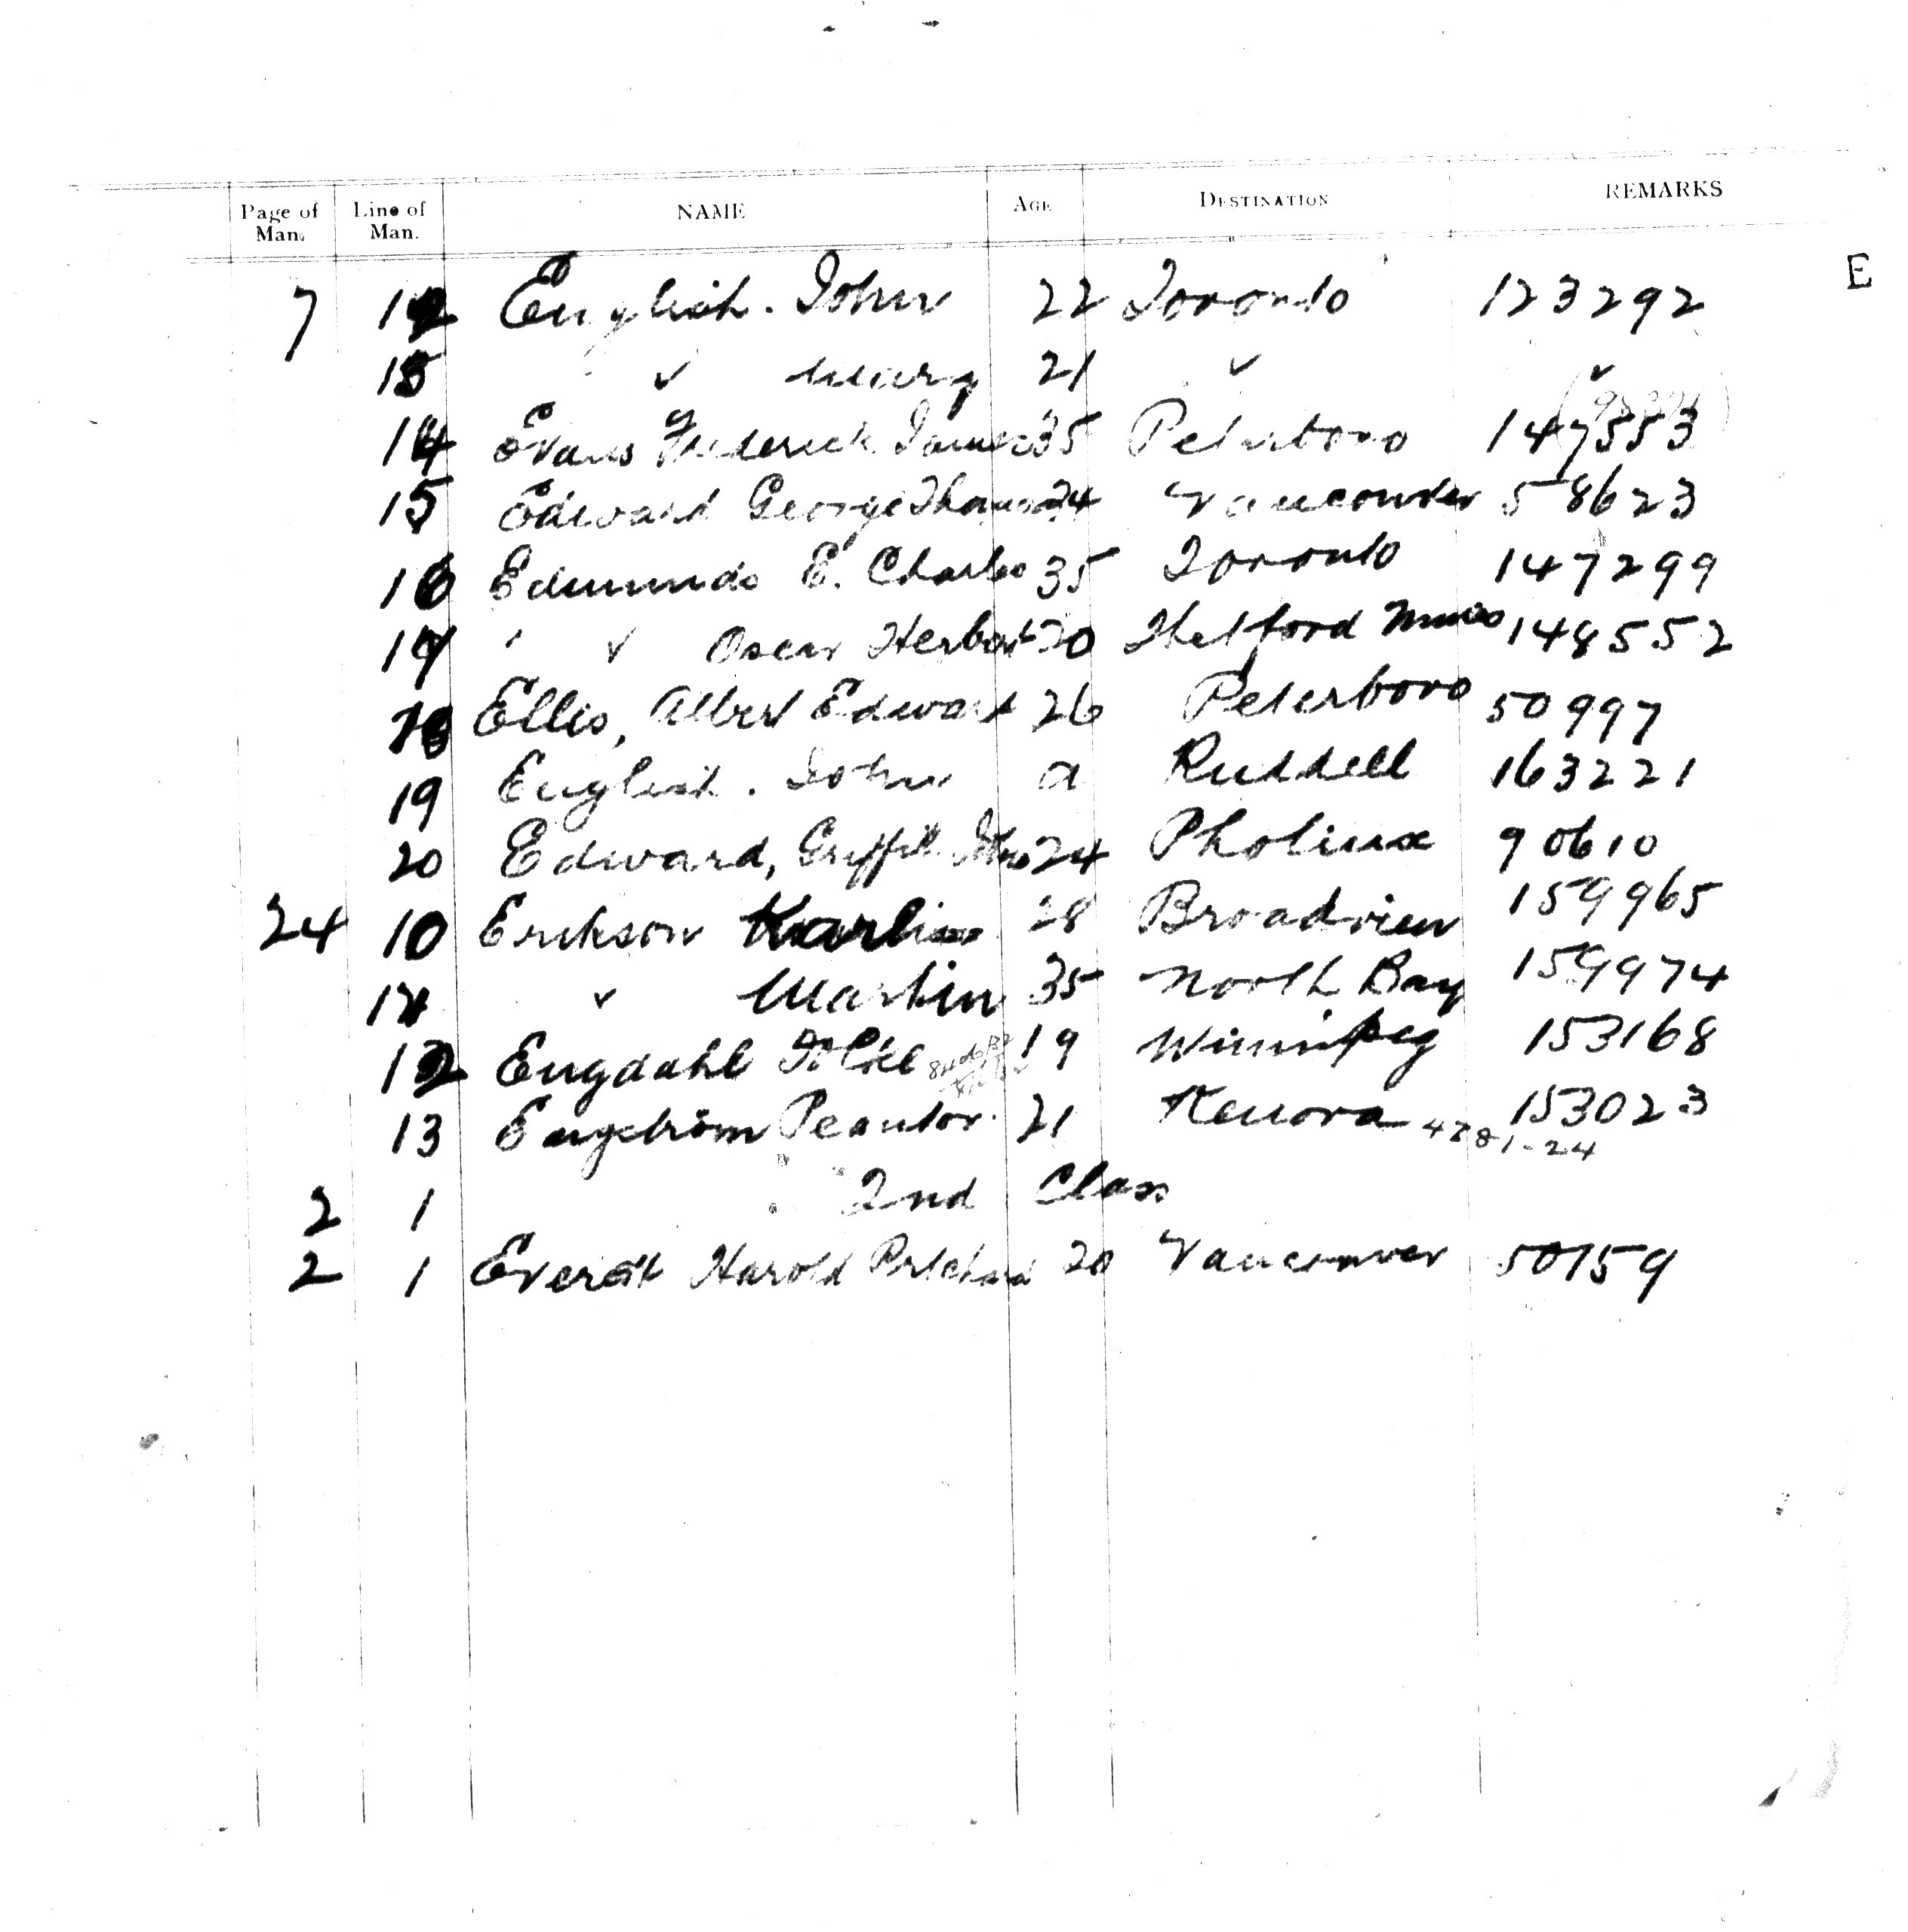 Page of Man. Line of Man. NAME AGE DESTINATION REMARKS
E
7 12 English. John 22 Toronto 123292
13 ✓ Mary 21 ✓ ✓
14 Evans Frederick James 35 Peterboro 147553
15 Edward George Thomas 24 Vancouver 58623
16 Edmunds E. Charles 35 Toronto 147299
17 ✓ Oscar Herbert 20 Thetford Mines 148552
18 Ellis, Albert Edward 26 Peterboro 50997
19 English. John a Ruddell 163221
20 Edward, Griffith 24 90610
24 10 Erikson Karl 28 Broadview 159965
11 ✓ Martin 35 North Bay 159974
12 Engdahl 19 Winnipeg 153168
13 Engström 21 Kenora 153023
4781-24
2 1 2nd Class
2 1 Everett Harold Pritchard 20 Vancouver 50159